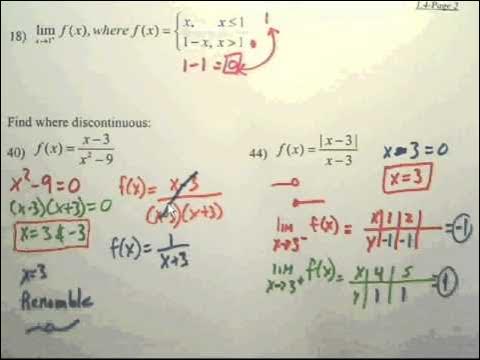 1.4-Page 2
18) lim x→1⁺ f(x), where f(x) = { x, x ≤ 1 1
1-x, x > 1
1-1 = 0
Find where discontinuous:
40) f(x) = x-3 / x²-9
x²-9=0
(x-3)(x+3)=0
x=3 & -3
x=3
Removable
f(x)= x-3 / (x-3)(x+3)
f(x)= 1 / x+3
44) f(x) = |x-3| / x-3
x-3=0
x=3
lim x→3⁻ f(x)= x 1 2
y -1 -1 = -1
lim x→3⁺ f(x)= x 4 5
y 1 1 = 1